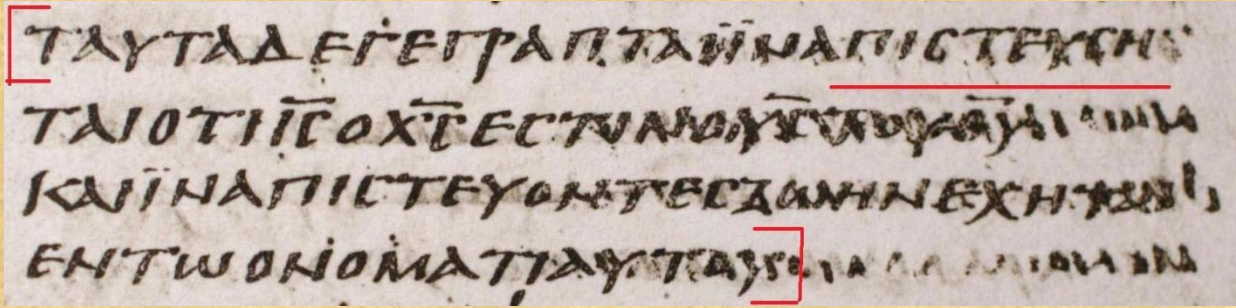 ΤΑΥΤΑΔΕΓΕΓΡΑΠΤΑΙΪΝΑΠΙϹΤΕΥϹΗ
ΤΑΙΟΤΙΙ̅Ϲ̅ΟΧ̅Ϲ̅ΕϹΤΙΝΟΥ̅Ϲ̅ΤΟΥΘ̅Υ̅
ΚΑΙΪΝΑΠΙϹΤΕΥΟΝΤΕϹΖΩΗΝΕΧΗΤΑΙ
ΕΝΤΩΟΝΟΜΑΤΙΑΥΤΟΥ